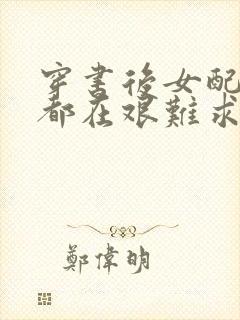 穿書後女配
都在艱難求
鄭偉明